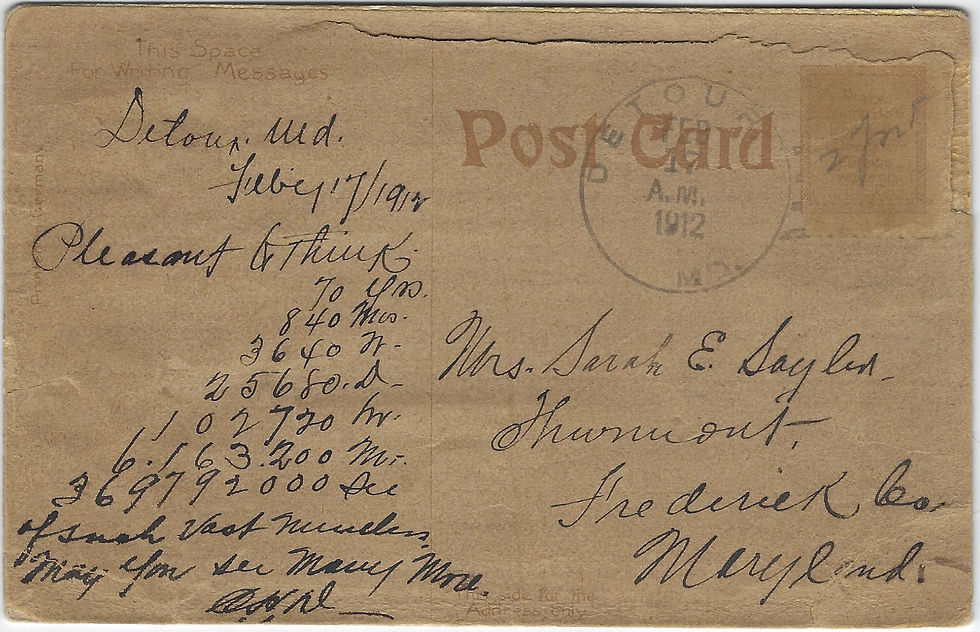 This Space
For Writing Messages
Post Card
DETOUR
FEB
17
A.M.
1912
MD.
Detour, Md.
Feb'y 17/1912
Pleasant to think
70 Yrs.
840 Mos.
3640 W.
25680. D.
102720 hr.
6.163.200 Mi.
369792000 Sec
of such Vast Numbers
May You see Many More.
Mrs. Sarah E. Sayler
Thurmont,
Frederick Co.
Maryland.
Printed in Germany
This side for the
Address Only